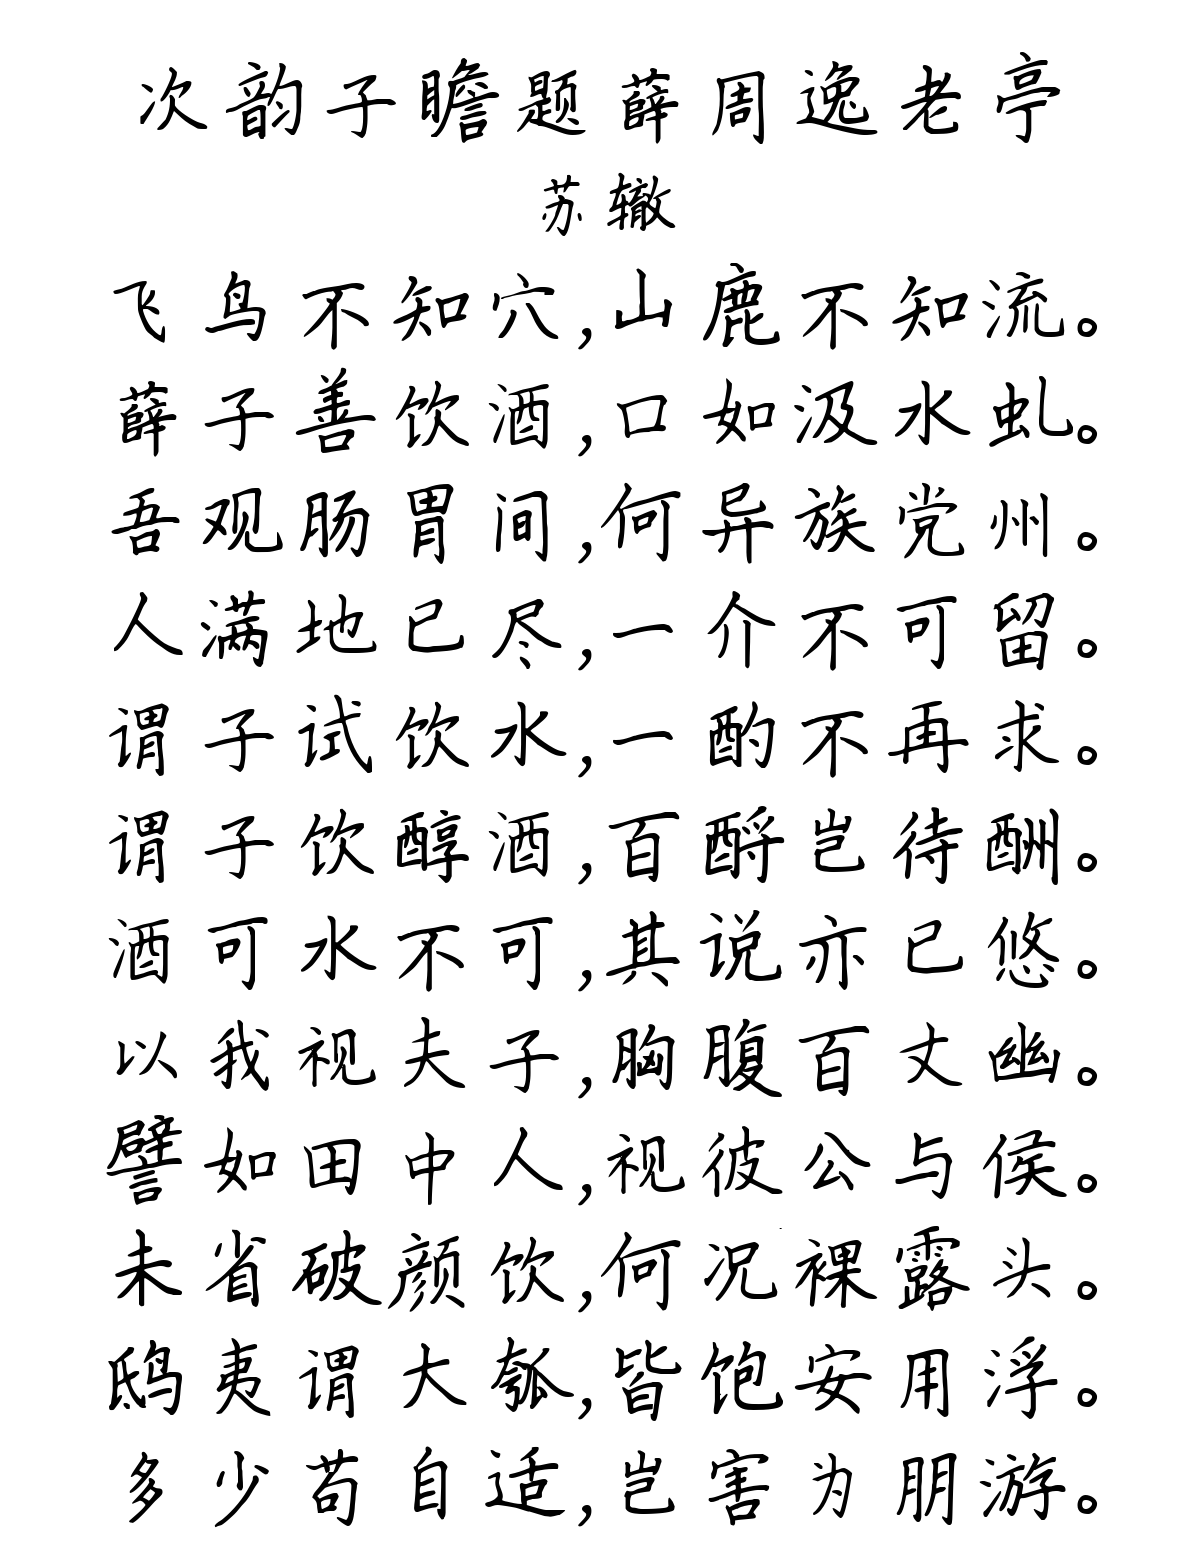 次韵子瞻题薛周逸老亭
苏辙
飞鸟不知穴,山鹿不知流。
薛子善饮酒,口如汲水虬。
吾观肠胃间,何异族党州。
人满地已尽,一介不可留。
谓子试饮水,一酌不再求。
谓子饮醇酒,百酹岂待酬。
酒可水不可,其说亦已悠。
以我视夫子,胸腹百丈幽。
譬如田中人,视彼公与侯。
未省破颜饮,何况裸露头。
鸱夷谓大瓠,皆饱安用浮。
多少苟自适,岂害为朋游。